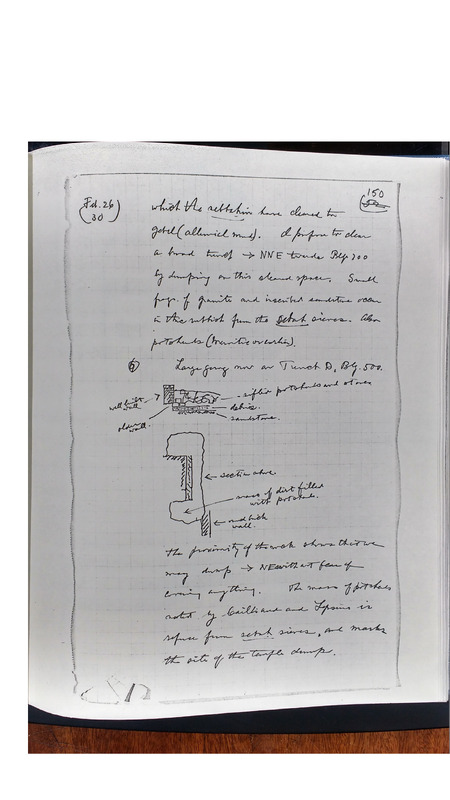 150
Feb. 26
(30)
which the sebbakin have cleared to
gebel (alluvial mud). I propose to clear
a broad trench → NNE towards Blg. 200
by dumping on this cleared space. Small
frags. of granite and inscribed sandstone occur
in the rubbish from the sebakh sieves. Also
potsherds (Meroitic overwhelm.).
6) Large gang now on Trench D, Blg. 500.
sifter potsherds and stones
well built wall
debris.
older wall.
sandstone.
section above
mass of dirt filled
with potsherds.
mud brick
wall.
the proximity of the rock shows that we
may dump → NE without fear of
covering anything. The mass of potsherds
noted by Cailliaud and Lepsius is
refuse from sebakh sieves, and marks
the site of the temple dumps.